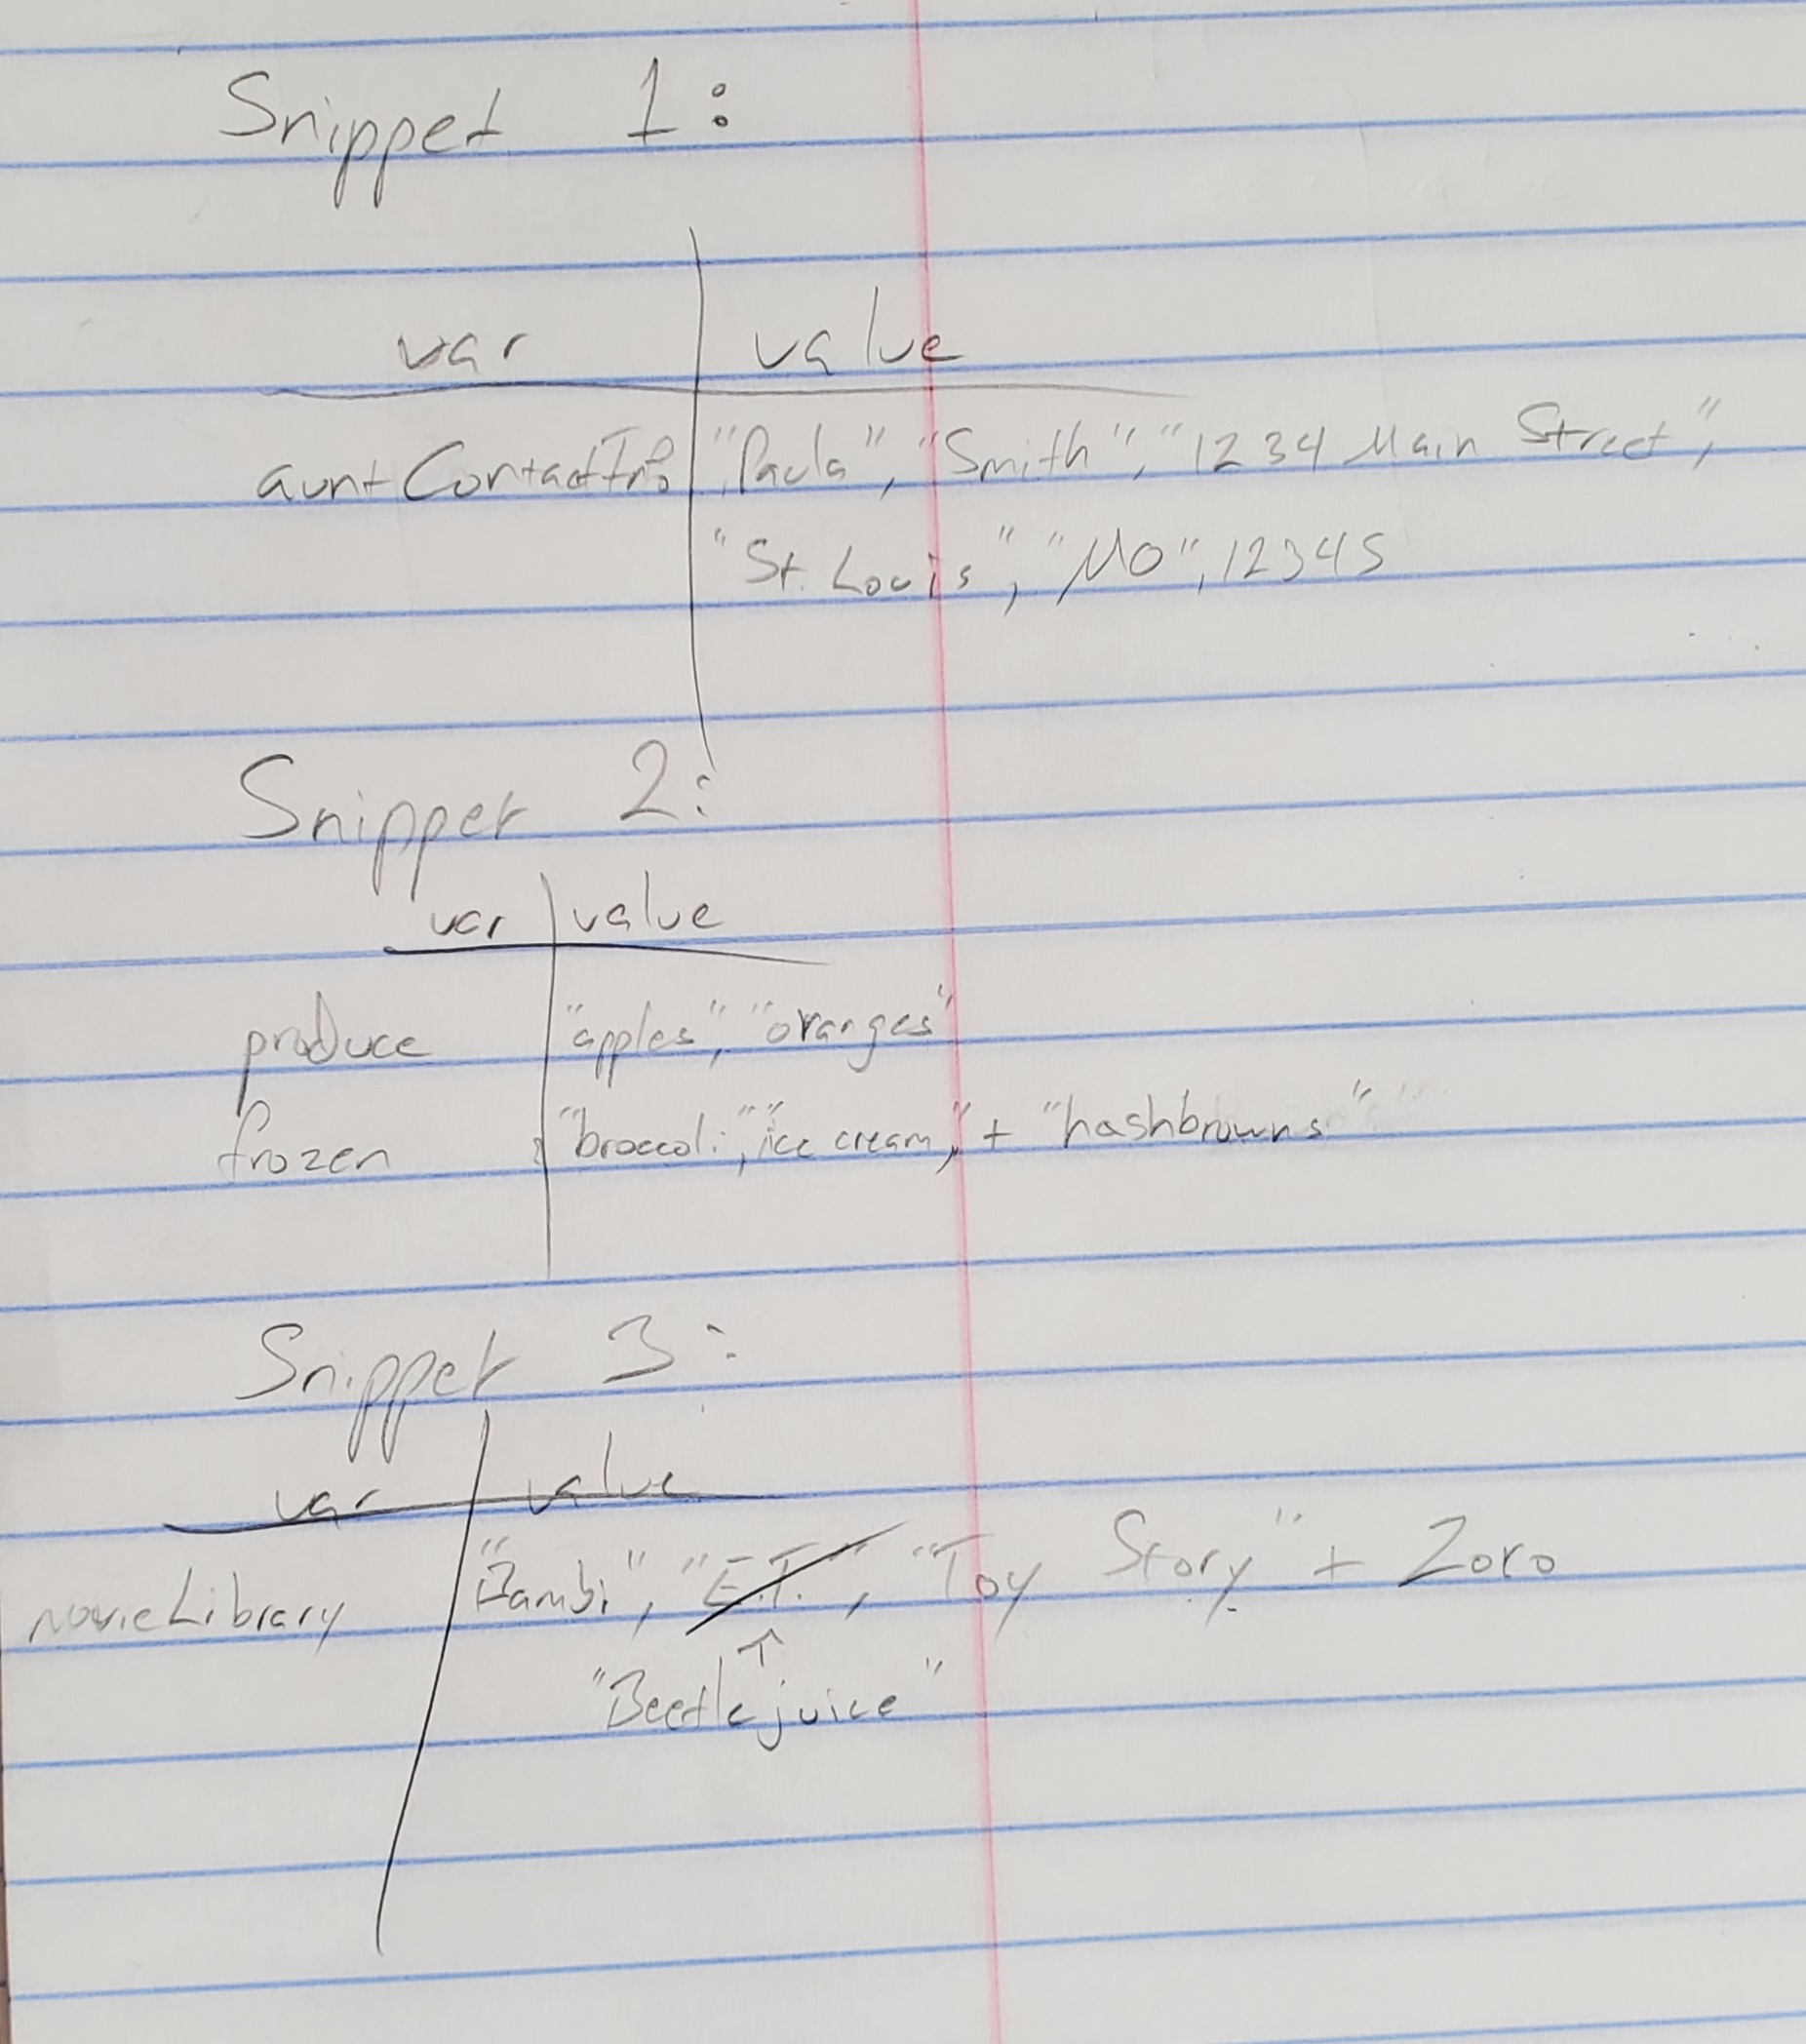 Snippet 1:
var value
auntContactInfo "Paula", "Smith", "1234 Main Street",
"St. Louis", "MO", 12345
Snippet 2:
var value
produce "apples", "oranges"
frozen "broccoli", "ice cream", + "hashbrowns"
Snippet 3:
var value
movieLibrary "Bambi", "E.T.", "Toy Story" + Zoro
↑
"Beetlejuice"